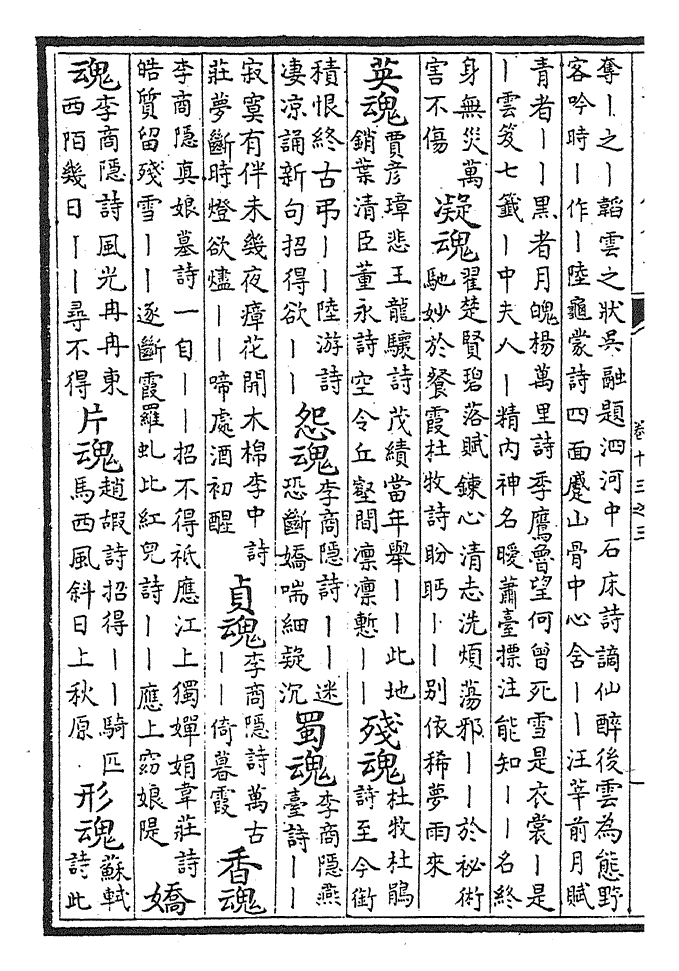 卷十三之三
奪丨之丨韜雲之狀吳融題泗河中石床詩謫仙醉後雲為態野
客吟時丨作丨陸龜蒙詩四面蹙山骨中心舍丨丨汪莘前月賦
青者丨丨黑者月魄楊萬里詩季鷹魯望何曾死雪是衣裳丨是
丨雲笈七籤丨中夫人丨精内神名曖蕭臺摽注能知丨丨名終
身無災萬
害不傷
凝魂
翟楚賢碧落賦鍊心清志洗煩蕩邪丨丨於祕術
馳妙於餐霞杜牧詩盼眄丨丨别依稀夢雨來
英魂
賈彦璋悲王龍驤詩茂績當年舉丨丨此地
銷葉清臣董永詩空令丘壑間凛凛慙丨丨
殘魂
杜牧杜鵑
詩至今銜
積恨終古弔丨丨陸游詩
淒凉誦新句招得欲丨丨
怨魂
李商隱詩丨丨迷
恐斷嬌喘細疑沉
蜀魂
李商隱燕
臺詩丨丨
寂寞有伴未幾夜瘴花開木棉李中詩
莊夢斷時燈欲燼丨丨啼處酒初醒
貞魂
李商隱詩萬古
丨丨倚暮霞
香魂
李商隱真娘墓詩一自丨丨招不得祗應江上獨嬋娟韋莊詩
皓質留殘雪丨丨逐斷霞羅虬比紅兒詩丨丨應上窈娘隄
嬌
魂
李商隱詩風光冉冉東
西陌幾日丨丨尋不得
片魂
趙嘏詩招得丨丨騎匹
馬西風斜日上秋原
形魂
蘇軾
詩此